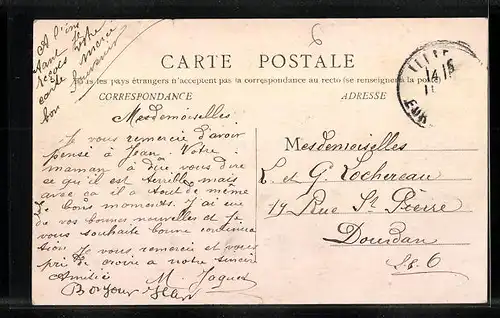 A l'ins
tant je
reçois votre
carte merci
bon souvenir
6
CARTE POSTALE
Tous les pays étrangers n'acceptent pas la correspondance au recto (se renseigner à la poste)
CORRESPONDANCE
ADRESSE
14
11
EUR
Mesdemoiselles.
Je vous remercie d'avoir
pensé à Jean. Votre
maman a dû vous dire
ce qu'il est terrible mais
avec ça il a tout de même
de bons moments. J'ai eue
de vos bonnes nouvelles et je
vous souhaite bonne continua
tion. Je vous remercie et vous
prie de croire a notre sincère
Amitié M. Jaquet
Bonjour Jean
Mesdemoiselles
L. et G. Lochereau
17 Rue St Pierre
Dourdan
S. & O